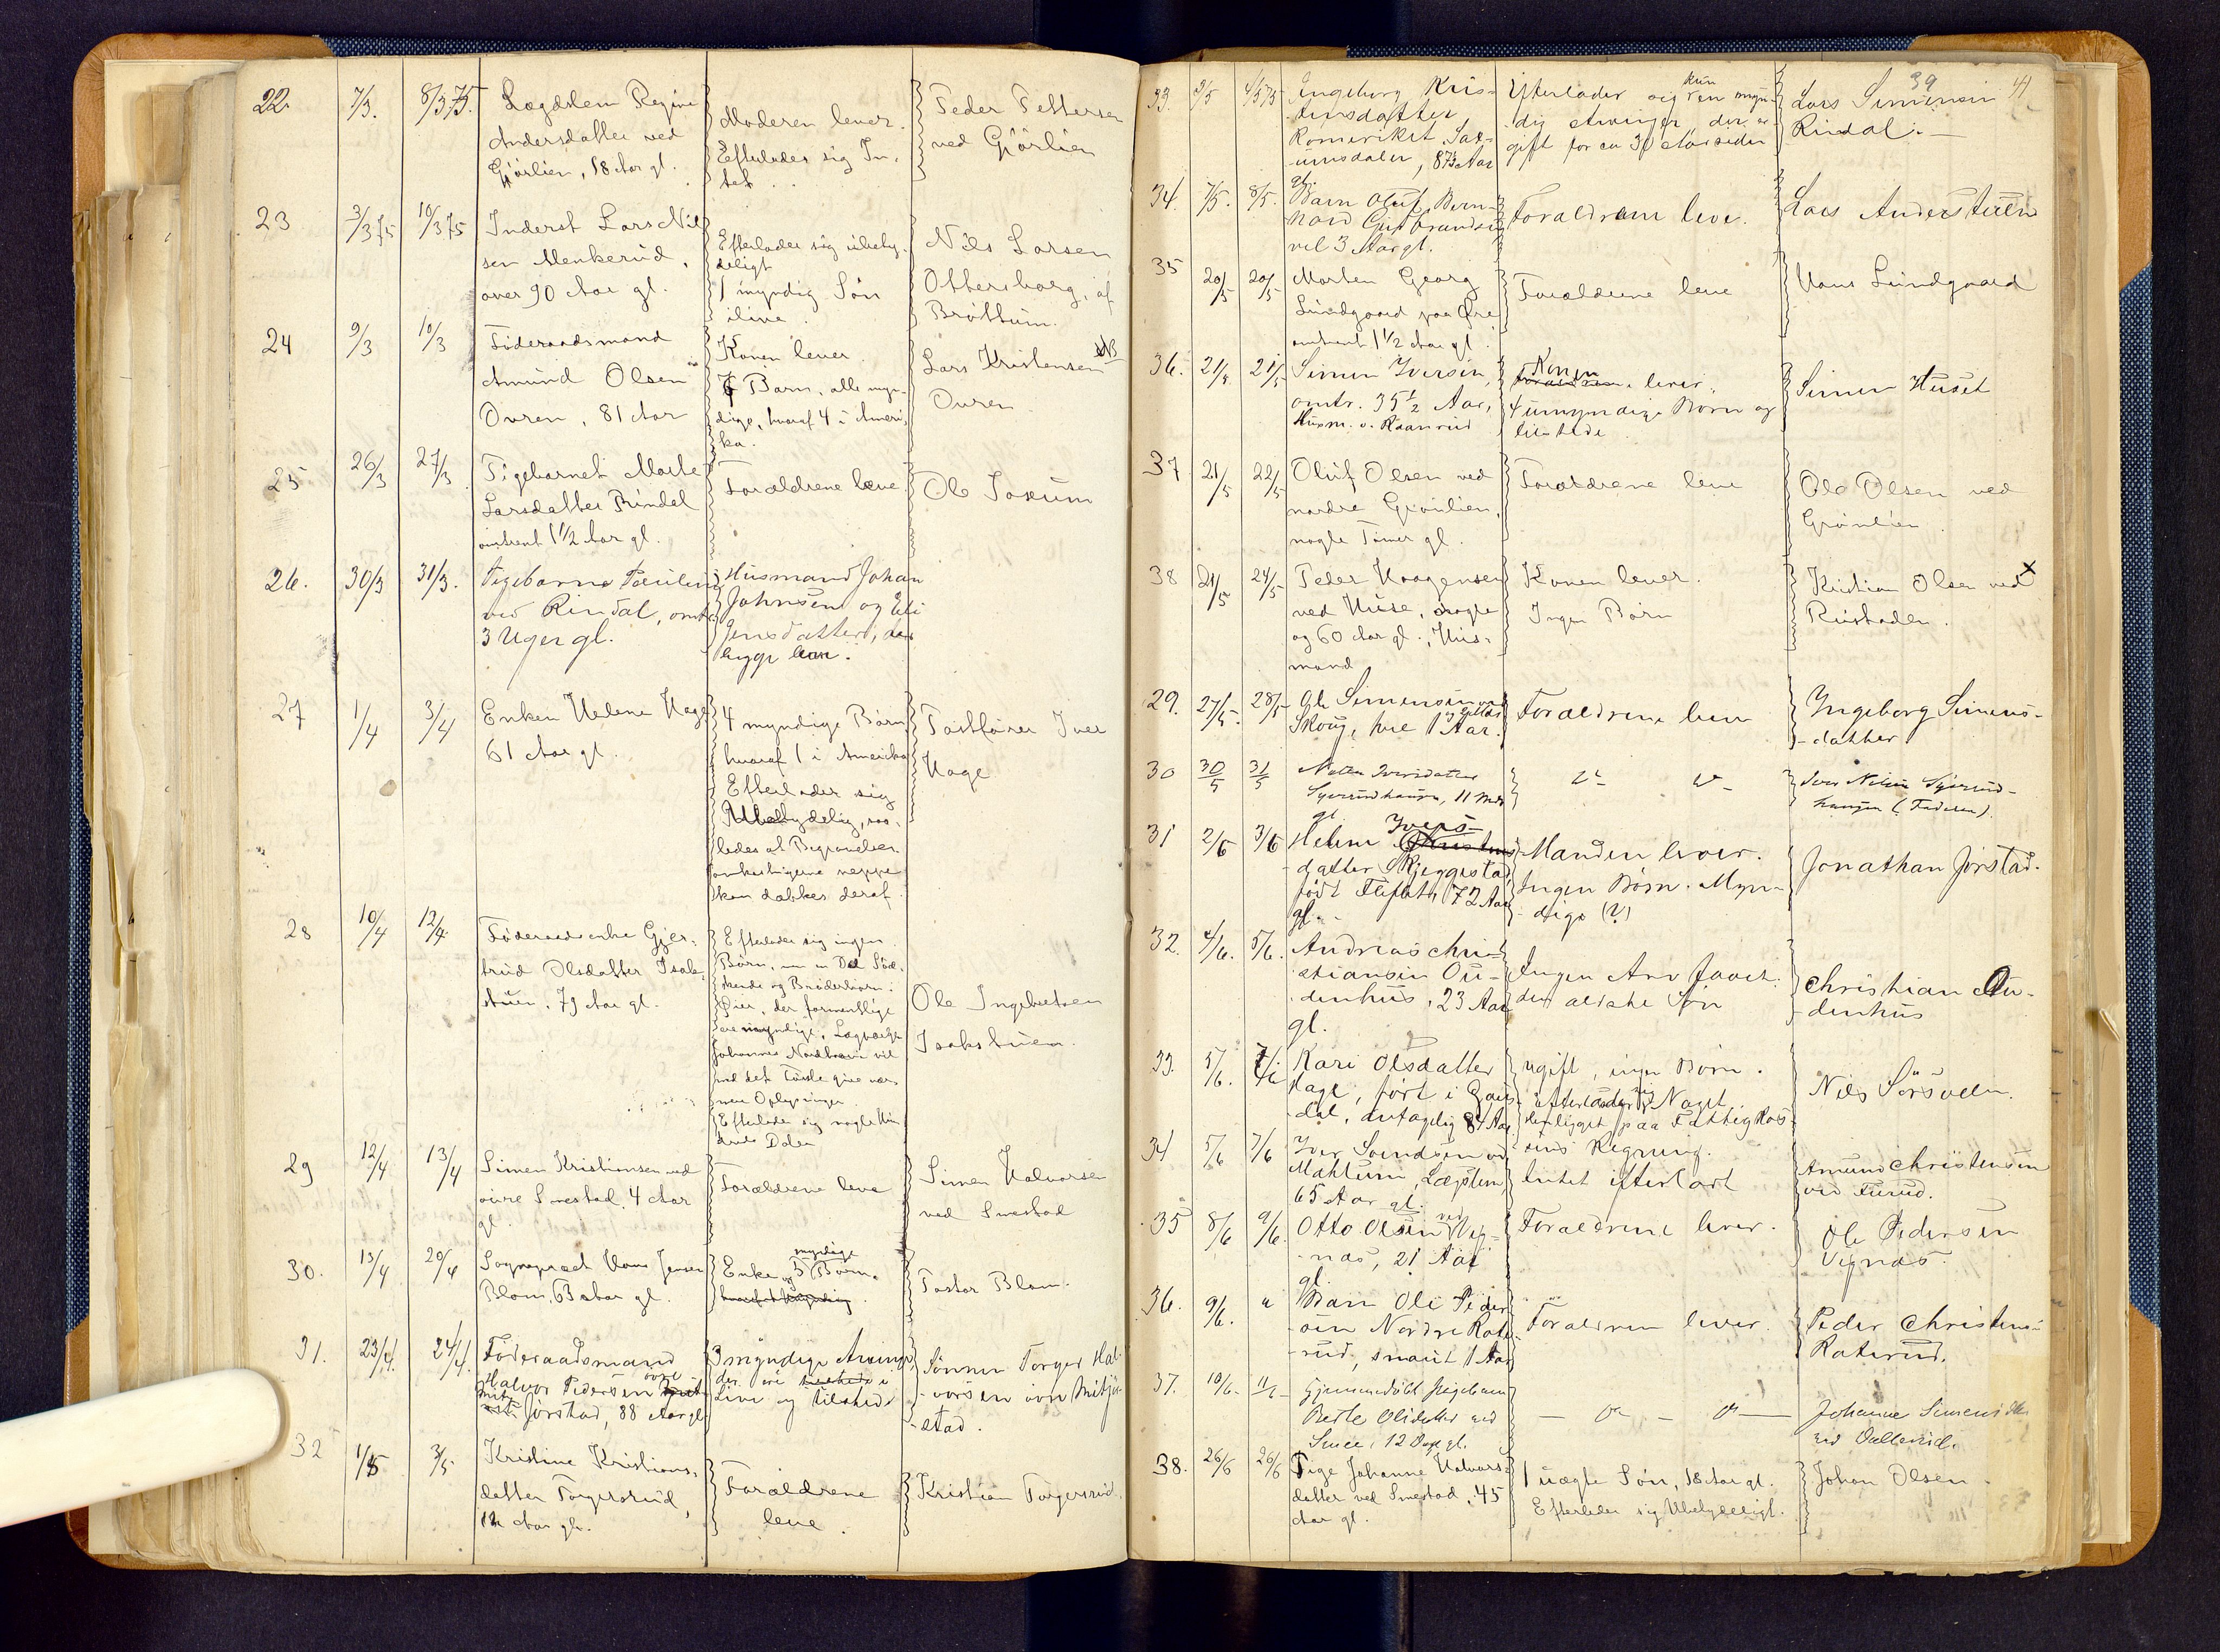 22. 7/3. 8/3 75. Lægdslem Regine
Andersdatter ved
Gjörlien, 18 Aar gl.
Moderen lever.
Efterlader sig In-
tet.
Peder Pettersen
ved Gjörlien
23 3/3 75 10/3 75 Inderst Lars Nil
sen Menkerud,
over 90 Aar gl.
Efterlader sig ubety-
deligt
1 myndig Søn
ilive.
Nils Larsen
Ottersborg, af
Brøttum.
24 9/3 10/3 Föderaadsmand
Amund Olsen
Ovren, 81 Aar
Konen lever.
Börn, alle myn-
dige, hvoraf 4 i Ameri-
ka.
Lars Kristensen NB
Ovren
25 26/3 27/3. Pigebarnet Marte
Larsdatter Rindal
omtrent 1 1/2 Aar gl.
Forældrene leve
Ole Joxum
26. 30/3 31/3. Pigebarne Pauline
ved Rindal, omtr.
3 Uger gl.
Husmand Johan
Johnsen og Eli
Jensdatter, der
begge leve.
27 1/4 3/4 Enken Helene Hage
61 Aar gl.
4 myndige Börn
hvoraf 1 i Amerika
Efterlader sig
Ubetydelig, saa-
ledes at Begravelses
omkostningerne neppe
kan dækkes deraf.
Postfører Iver
Hage
28 10/4 12/4. Föderaadsenke Gjer-
trud Olsdatter Isak-
stuen, 79 Aar gl.
Efterlader sig ingen
Börn, men en Del Söd-
skende og Broderbörn.
der formentlige
ere myndige, Lagværge
Johannes Nordhaven vil
ved det Første give nær-
mere Oplysninger.
Efterlader sig nogle Hun
drede Daler
Ole Ingebretsen
Isakstuen.
29 12/4 13/4 Simen Kristiansen ved
övre Smestad. 4 Aar
gl.
Forældrene leve
Simen Halvorsen
ved Smestad
30. 13/4 20/4 Sognepræst Hans Jensen
Blom, 63 Aar gl.
myndige
Enke og 5 Börn.
Pastor Blom.
31. 23/4. 24/4. Föderaadsmand
Halvor Pedersen övre
Mit-
jörstad, 88 Aar gl
3 myndige Arvinge
der ere i
Live og tilstede
Sönnen Torger Hal-
vorsen övre Mitjör-
stad.
32 1/5 3/5 Kristine Kristians-
datter Torgersrud,
12 Aar gl.
Forældrene
leve.
Kristian Torgersrud.
39
33. 3/5 4/5 75 Ingeborg Kris-
tensdatter
Romeriket. Sax-
umsdalen, 87 1/2 Aar
gl.
kun
Efterlader sig en myn-
dig Arving, der er
gift for ca 30 Aar siden
Lars Simensen
Rindal.
34. 7/5. 8/5. Barn Oluf Bern-
hard Gulbrandsen
vel 3 Aar gl.
Forældrene leve.
Lars Anderstuen
35 20/5 20/5 Morten Georg
Lundgaard paa Øre
omtrent 1 1/2 Aar gl.
Forældrene leve
Hans Lundgaard
36. 21/5 21/5 Simen Iversen,
omtr. 35 1/2 Aar,
Husm. v. Raanrud
Konen
lever.
4 umyndige Børn og
tilstede.
Simen Huset
37 21/5 22/5 Oluf Olsen ved
nordre Grönlien,
nogle Timer gl.
Forældrene leve
Ole Olsen ved
Grönlien.
38 21/5 24/5 Peder Haagensen
ved Huse, nogle
og 60 Aar gl. Hus-
mand
Konen lever.
Ingen Börn
Kristian Olsen ved x
Rustaden.
29. 27/5. 28/5 Ole Simensen ved
Skoug, hele 1 Aar.
Forældrene leve
Ingeborg Simens-
-datter
30 30/5 31/5 Iversdatter
Sjyrudhaugen, 11 Mdr
gl.
Iver Nilsen Sjyrud-
haugen (Faderen).
31 2/6 3/6 Helene Ivers-
datter Skjeggestad
født Fliflet, 72 Aar
gl.
Manden lever.
Ingen Børn. Myn-
-dige (?)
Jonathan Jörstad.
32. 4/6. 5/6. Andreas Chri-
stiansen Ou-
denhus, 23 Aar
gl.
Ingen Arv
den ældste Søn
Christian Ou-
-denhus
33. 5/6. 7/6 Kari Olsdatter
Hage, født i Gaus-
dal, antagelig 84 Aar
ugift, ingen Børn.
efterlader sig Noget
henligget paa Fattigkas-
sens Regning.
Nils Sörsveen.
34 5/6 7/6 Iver Svendsen ved
Mahlum, Lægslem,
65 Aar gl.
Intet efterladt
Amund Christensen
ved Furud.
35 8/6 9/6. Otto Olsen ved Vig-
-næs, 21 Aar
gl.
Forældrene lever.
Ole Pedersen
Vignæs.
36. 9/6. " Barn Ole Peder
sen Nordre Rote-
rud, snaut 1 Aar
Forældrene lever.
Peder Christens:
Roterud.
37. 10/6. 11/6 Hjemmedøbt Pigebarn
Berte Olsdatter ved
Smee, 12 Dage gl.
Johanne Simensdtr
ved Ballerud.
38. 26/6 26/6 Pige Johanne Halvors-
datter ved Smestad, 45
Aar gl.
1 uægte Søn, 18 Aar gl.
Efterlader sig Ubetydeligt.
Johan Olsen